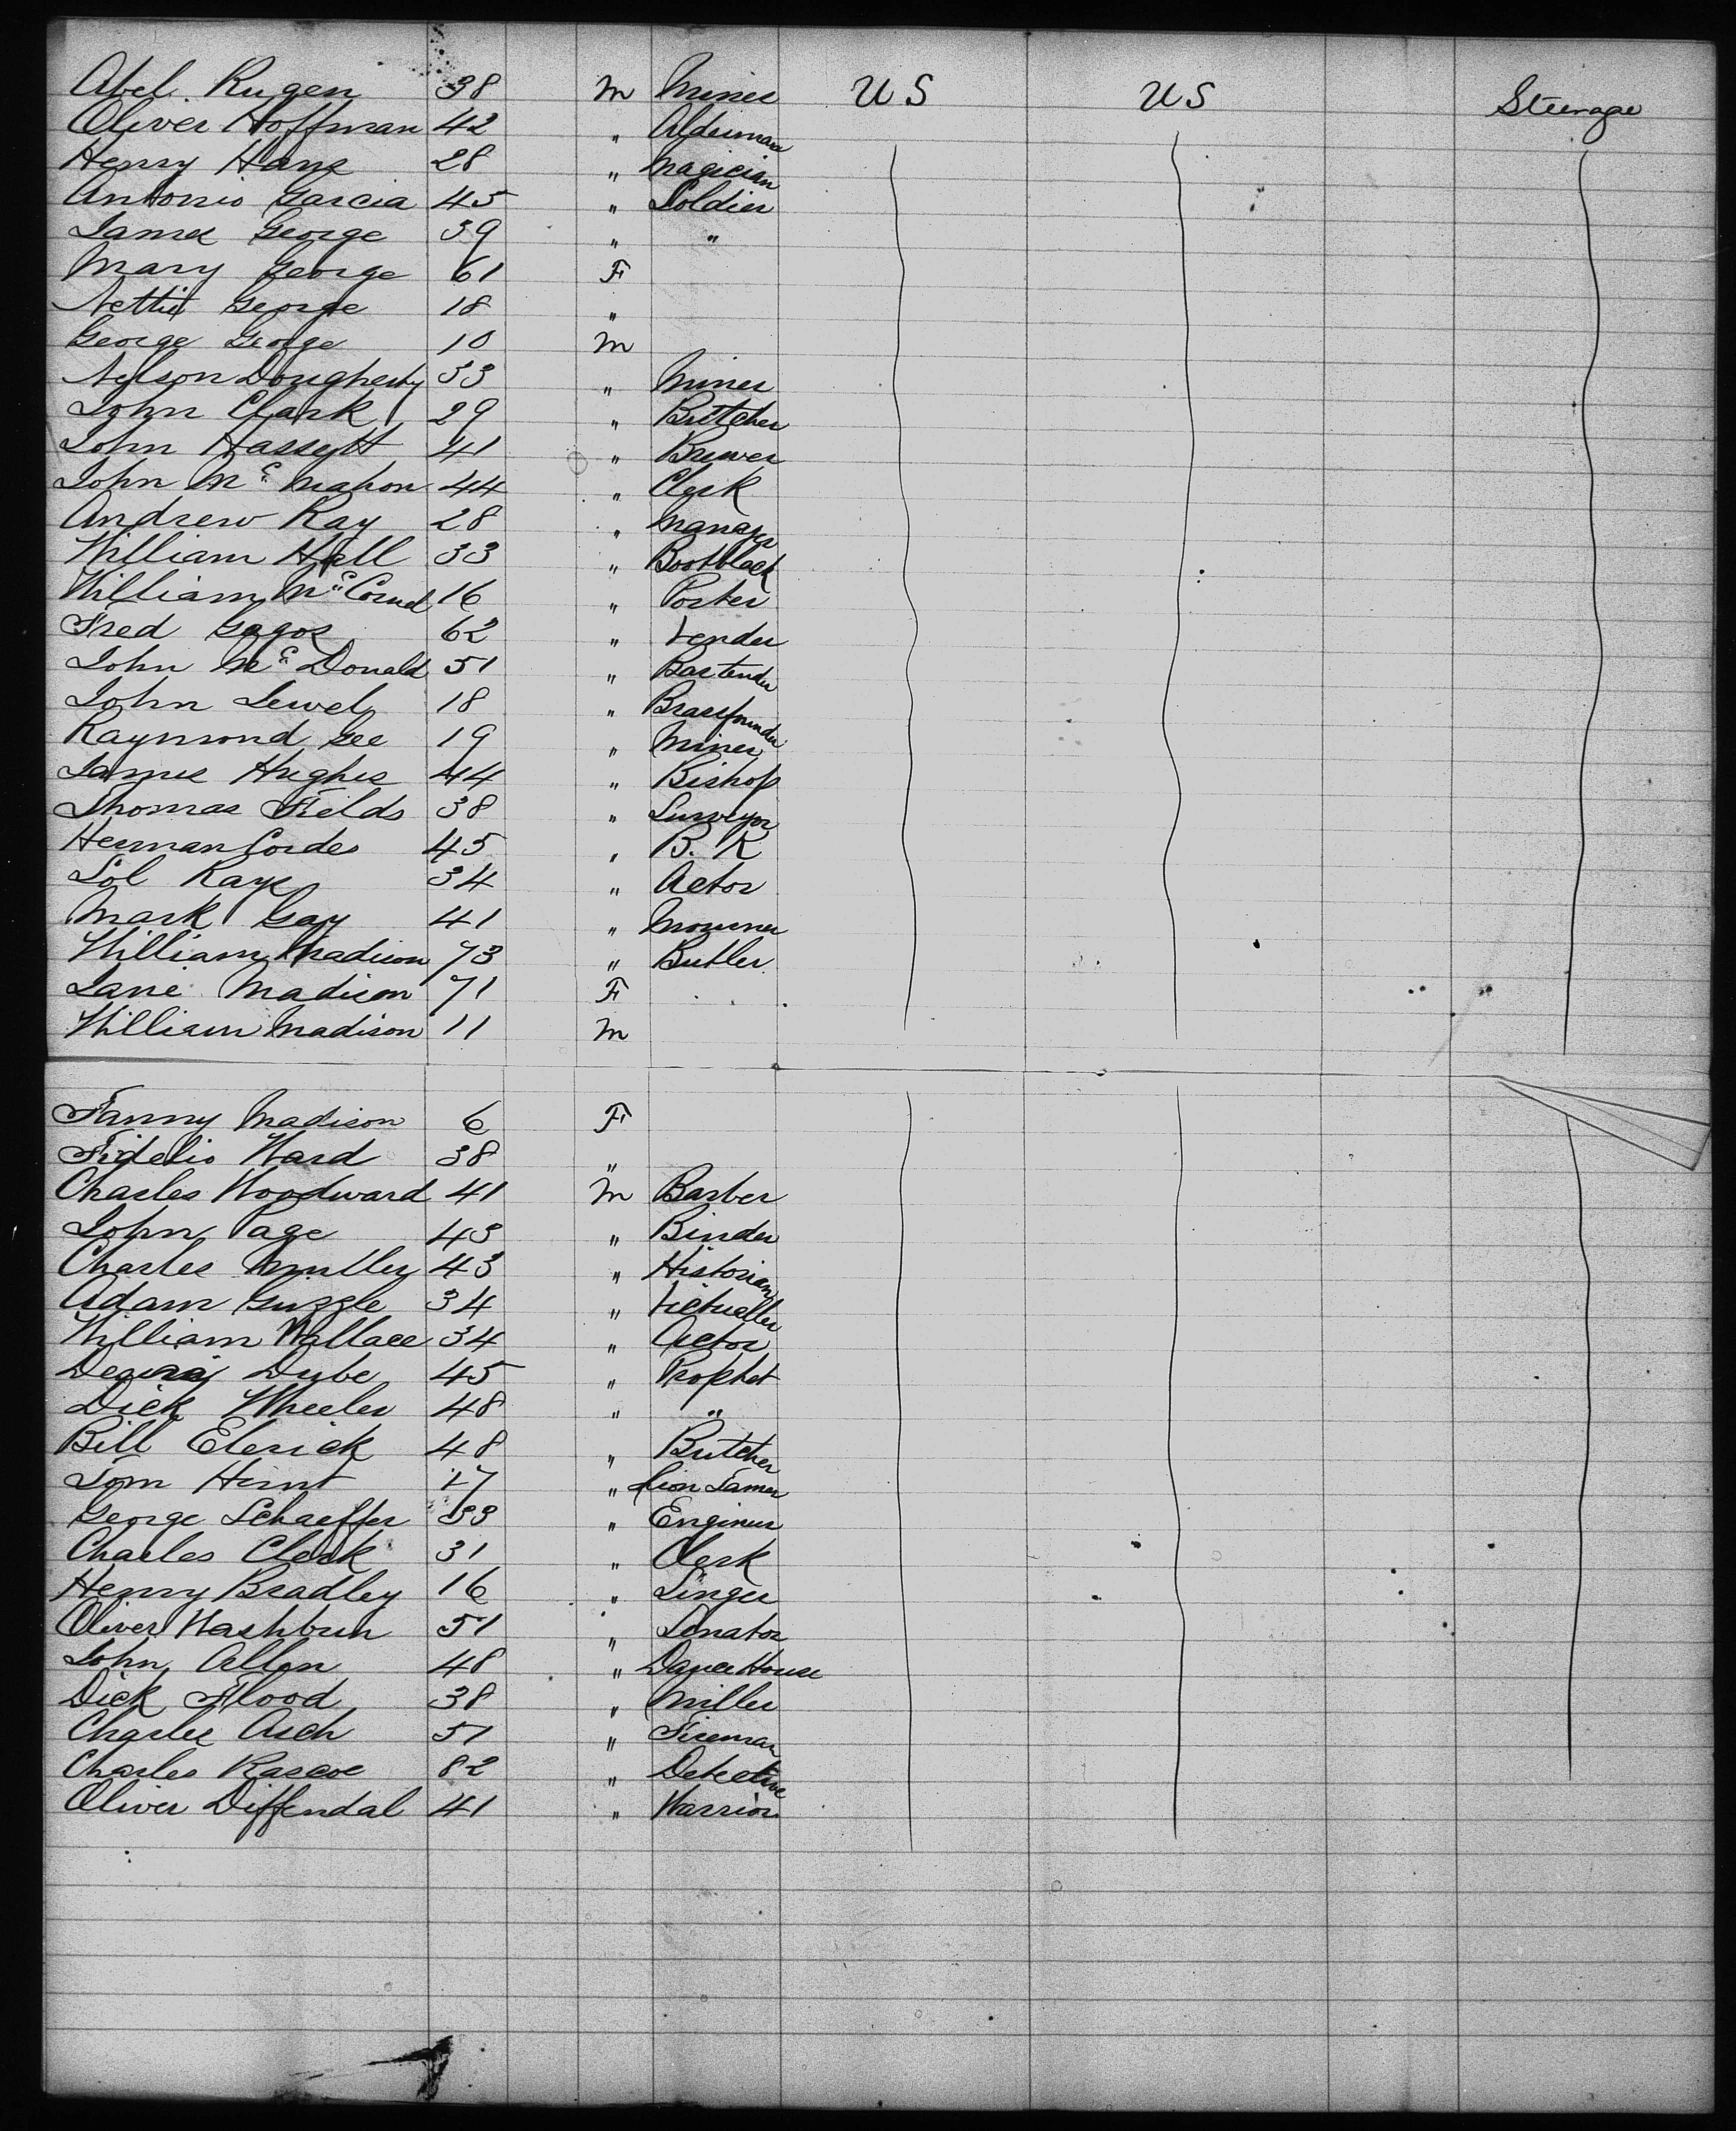 Abel Rugen 38 m Miner US US Steerage
Oliver Hoffman 42 " Alderman
Henry Hang 28 " Magician
Antonio Garcia 45 " Soldier
James George 39 " "
Mary George 61 F
Nettie George 18 "
George George 10 m
Nelson Dougherty 33 " Miner
John Clark 29 " Butcher
John Hassett 41 " Brewer
John McMahon 44 " Clerk
Andrew Ray 28 " Manager
William Hall 33 " Bootblack
William McCorud 16 " Porter
Fred 62 " Vender
John McDonald 51 " Bartender
John Lewel 18 " Brassfounder
Raymond Gee 19 " Miner
James Hughes 44 " Bishop
Thomas Fields 38 " Surveyor
Herman Cordes 45 " B. K
Sol Kaye 34 " Actor
Mark Gay 41 " Mourner
William Madison 73 " Butler
Jane Madison 71 F
William Madison 11 m
Fanny Madison 6 F
Fidelio Ward 38 "
Charles Woodward 41 m Barber
John Page 43 " Binder
Charles Mulley 43 " Historian
Adam Guzzle 34 " Victualler
William Wallace 34 " Actor
Dube 45 " Prophet
Dick Wheeler 48 " "
Bill Elerick 48 " Butcher
Tom Hunt 17 " Lion Tamer
George Schaeffer 33 " Engineer
Charles Clerk 31 " Clerk
Henry Bradley 16 " Singer
Oliver Washburn 51 " Senator
John Allen 48 " Dance House
Dick Flood 38 " Miller
Charles Asch 51 " Fireman
Charles Rascoe 82 " Detective
Oliver Diffendal 41 " Warrior